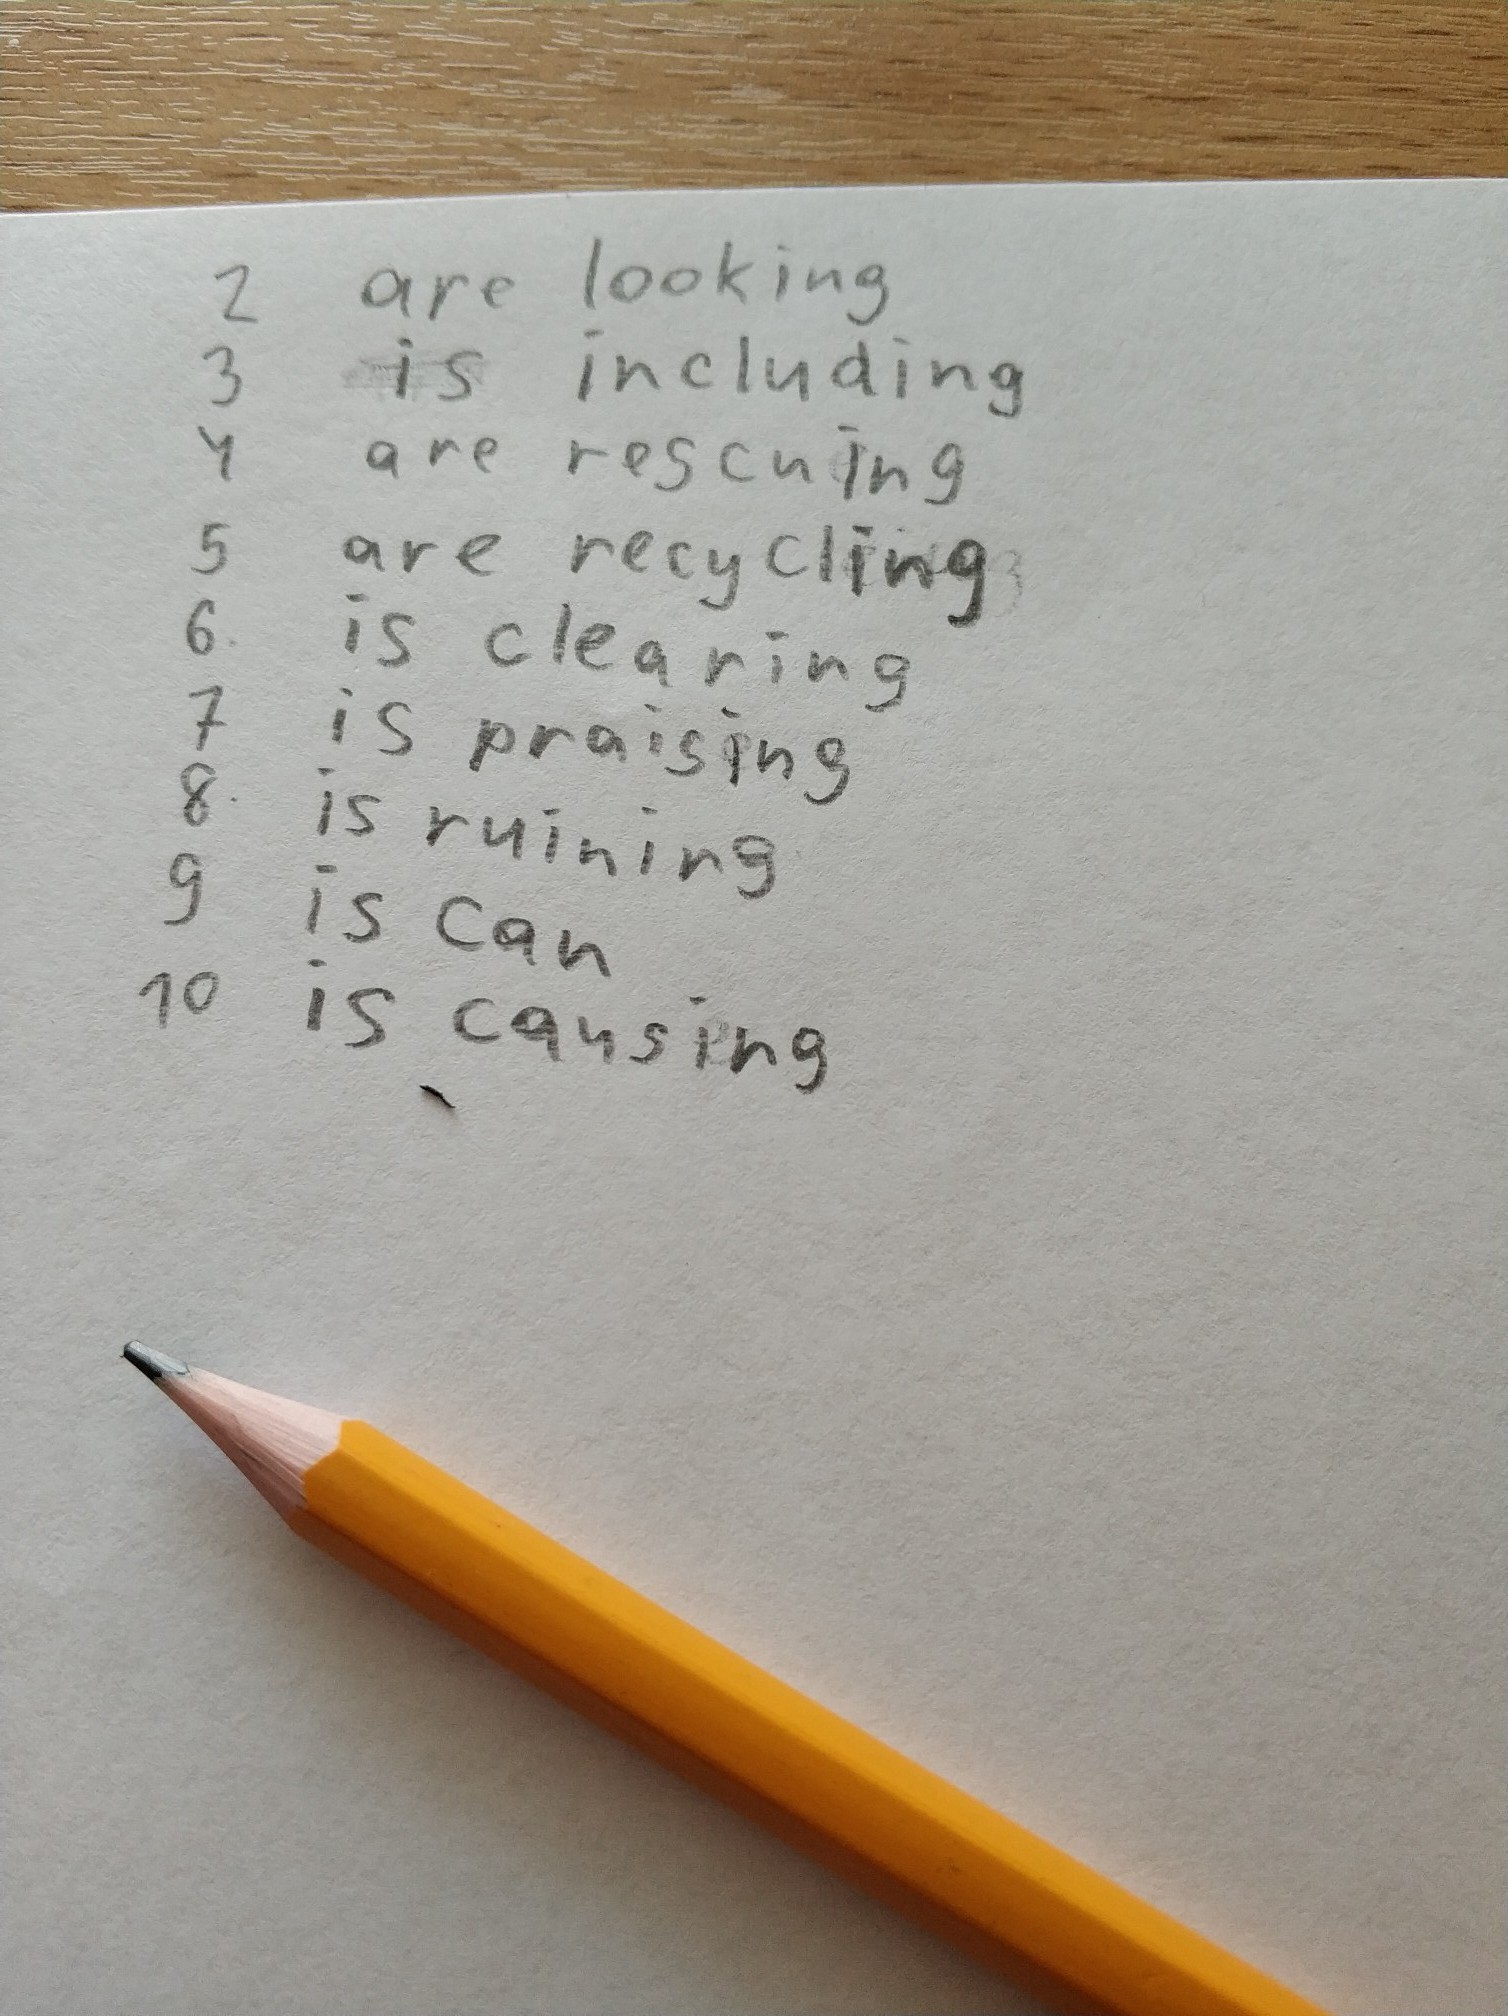 2 are looking
3 is including
4 are rescuing
5 are recycling
6. is clearing
7 is praising
8. is ruining
9 is can
10 is causing